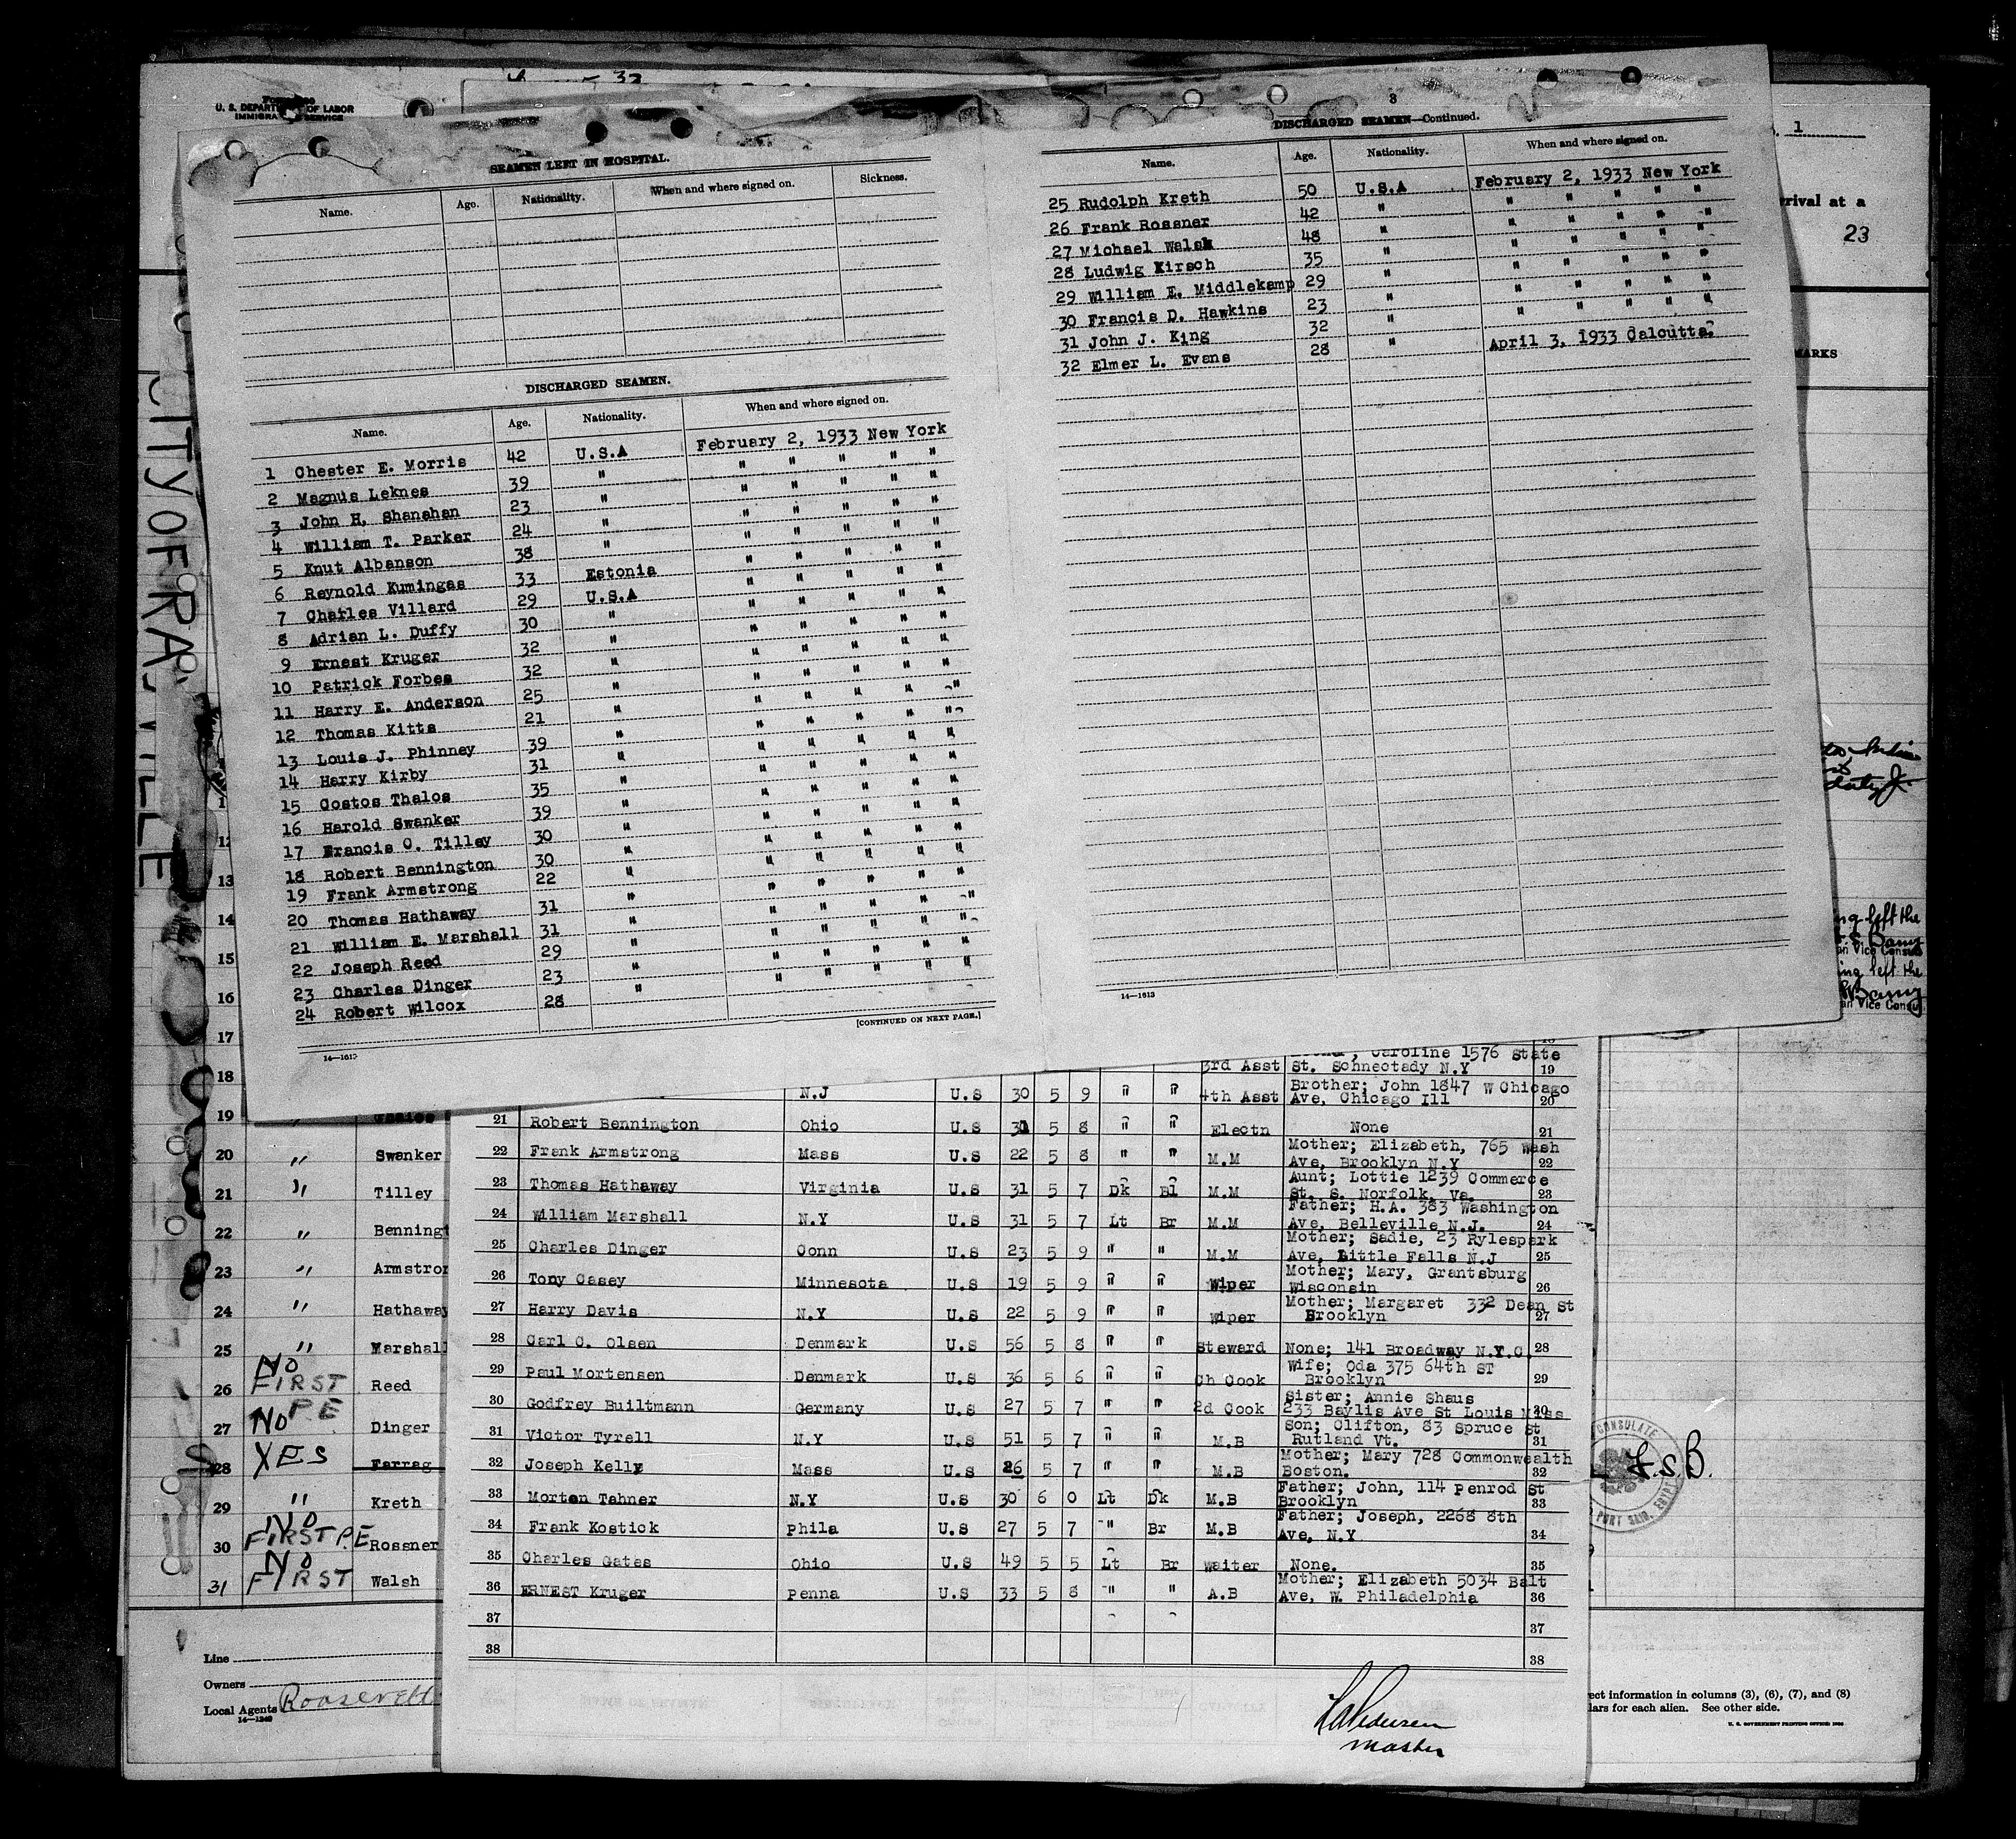 32
U. S. DEPARTMENT OF LABOR
IMMIGRATION SERVICE
SEAMEN LEFT IN HOSPITAL.
Name. Age. Nationality. When and where signed on. Sickness.
DISCHARGED SEAMEN.
Name. Age. Nationality. When and where signed on.
1 Chester E. Morris 42 U.S.A February 2, 1933 New York
2 Magnus Leknes 39 " " " " " "
3 John H. Shanahan 23 " " " " " "
4 William T. Parker 24 " " " " " "
5 Knut Albanson 38 " " " " " "
6 Reynold Kumingas 33 Estonia " " " " "
7 Charles Villard 29 U.S.A " " " " "
8 Adrian L. Duffy 30 " " " " " "
9 Ernest Kruger 32 " " " " " "
10 Patrick Forbes 32 " " " " " "
11 Harry E. Anderson 25 " " " " " "
12 Thomas Kitts 21 " " " " " "
13 Louis J. Phinney 39 " " " " " "
14 Harry Kirby 31 " " " " " "
15 Costos Thalos 35 " " " " " "
16 Harold Swanker 39 " " " " " "
17 Francis O. Tilley 30 " " " " " "
18 Robert Bennington 30 " " " " " "
19 Frank Armstrong 22 " " " " " "
20 Thomas Hathaway 31 " " " " " "
21 William E. Marshall 31 " " " " " "
22 Joseph Reed 29 " " " " " "
23 Charles Dinger 23 " " " " " "
24 Robert Wilcox 28 " " " " " "
[CONTINUED ON NEXT PAGE.]
14—1613
3
DISCHARGED SEAMEN—Continued.
Name. Age. Nationality. When and where signed on.
25 Rudolph Kreth 50 U.S.A February 2, 1933 New York
26 Frank Rossner 42 " " " " " "
27 Michael Walsh 48 " " " " " "
28 Ludwig Kirsch 35 " " " " " "
29 William E. Middlekamp 29 " " " " " "
30 Francis D. Hawkins 23 " " " " " "
31 John J. King 32 " " " " " "
32 Elmer L. Evans 28 " April 3, 1933 Calcutta.
14—1613
1
rrival at a
23
MARKS
ng left the
an Vice Consul
ing left the
an Vice Consul
CITY OF RA VILLE
12
13
14
15
16
17
18
19
20 " Swanker
21 " Tilley
22 " Benningt
23 " Armstron
24 " Hathaway
25 " Marshall
26 NO FIRST PE Reed
27 NO Dinger
28 YES Farrag
29 " Kreth
30 NO FIRST P.E Rossner
31 NO FIRST Walsh
Line
Owners
Local Agents Roosevelt
14—1240
3rd Asst Caroline 1576 State
St. Schnectady N.Y 19
N.J U.S 30 5 9 " " 4th Asst Brother; John 1847 W Chicago
Ave, Chicago Ill 20
21 Robert Bennington Ohio U.S 31 5 8 " " Electn None 21
22 Frank Armstrong Mass U.S 22 5 8 " " M.M Mother; Elizabeth, 765 Wash
Ave, Brooklyn N.Y 22
23 Thomas Hathaway Virginia U.S 31 5 7 Dk Bl M.M Aunt; Lottie 1239 Commerce
St. S. Norfolk, Va. 23
24 William Marshall N.Y U.S 31 5 7 Lt Br M.M Father; H.A. 383 Washington
Ave, Belleville N.J. 24
25 Charles Dinger Conn U.S 23 5 9 " " M.M Mother; Sadie, 23 Rylespark
Ave, Little Falls N.J 25
26 Tony Casey Minnesota U.S 19 5 9 " " Wiper Mother; Mary, Grantsburg
Wisconsin 26
27 Harry Davis N.Y U.S 22 5 9 " " Wiper Mother; Margaret 332 Dean St
Brooklyn 27
28 Carl C. Olsen Denmark U.S 56 5 8 " " Steward None; 141 Broadway N.Y.C. 28
29 Paul Mortensen Denmark U.S 36 5 6 " " Ch Cook Wife; Oda 375 64th ST
Brooklyn 29
30 Godfrey Builtmann Germany U.S 27 5 7 " " 2d Cook Sister; Annie Shaus
233 Baylis Ave St Louis Miss 30
31 Victor Tyrell N.Y U.S 51 5 7 " " M.B Son; Clifton, 83 Spruce St
Rutland Vt. 31
32 Joseph Kelly Mass U.S 26 5 7 " " M.B Mother; Mary 728 Commonwealth
Boston. 32
33 Morten Tahner N.Y U.S 30 6 0 Lt Dk M.B Father; John, 114 Penrod St
Brooklyn 33
34 Frank Kostick Phila U.S 27 5 7 " Br M.B Father; Joseph, 2268 8th
Ave, N.Y 34
35 Charles Gates Ohio U.S 49 5 5 Lt Br Waiter None. 35
36 ERNEST Kruger Penna U.S 33 5 8 " " A.B Mother; Elizabeth 5034 Balt
Ave, W. Philadelphia 36
37 37
38 38
Master
CONSULATE
PORT SAID
F.S.B.
rect information in columns (3), (6), (7), and (8)
lars for each alien. See other side.
U. S. GOVERNMENT PRINTING OFFICE